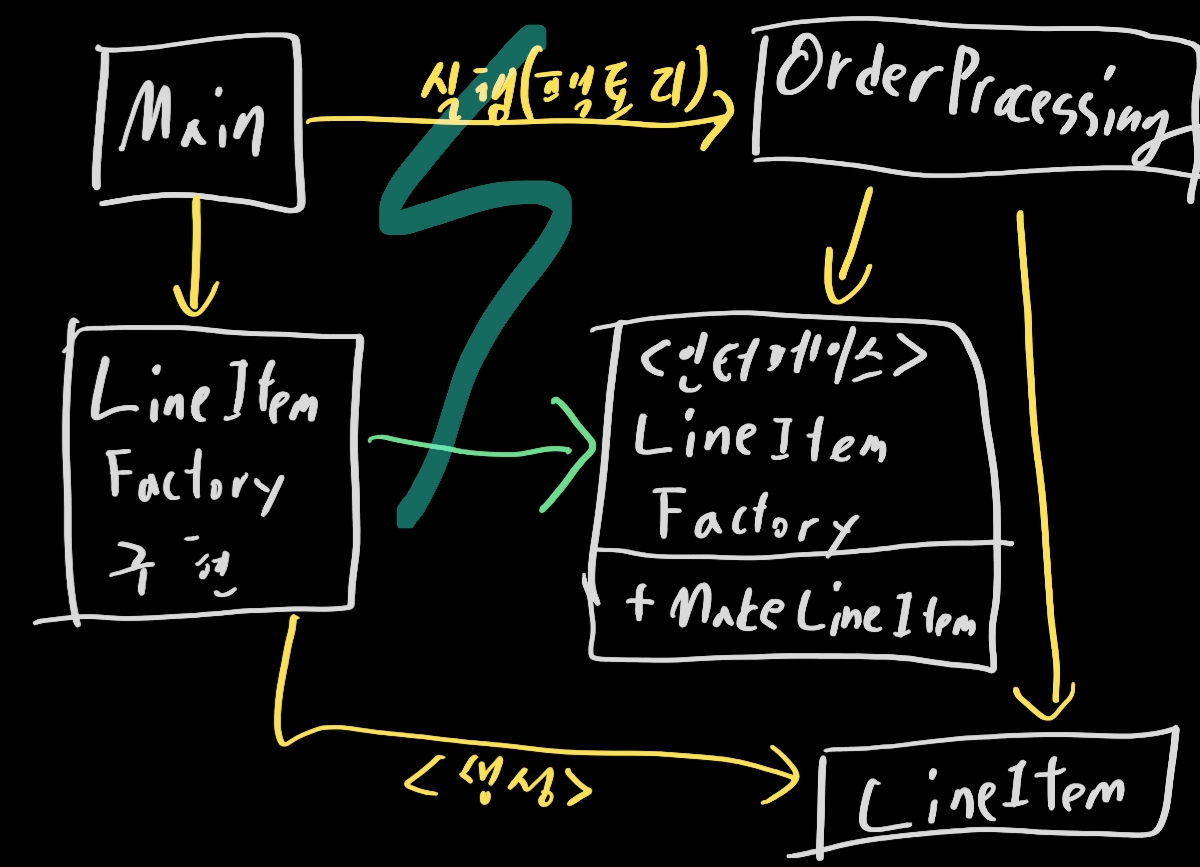 Main
실행(팩토리)
OrderProcessing
LineItem
Factory
구현
<인터페이스>
LineItem
Factory
+ Make LineItem
<생성>
LineItem